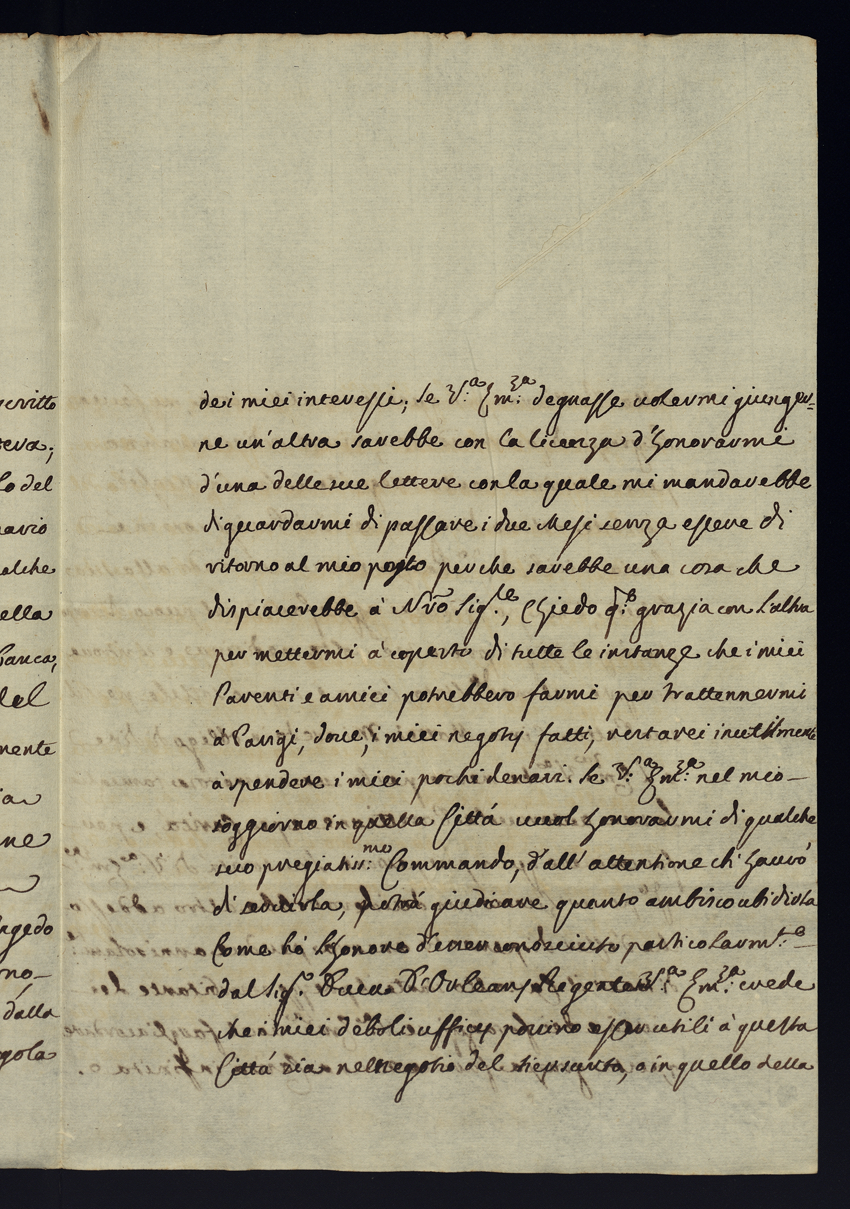 scritto
teva;
lo del
nario
alche
ella
banca,
del
mente
ia
ne
ngedo
no,
dalla
gola
dei miei interessi; se V.ª Em.ᶻᵃ degnasse volermi giunger=
ne un'altra sarebbe con la licenza d'honorarmi
d'una delle sue lettere con la quale mi mandarebbe
di guardarmi di passare i due Mesi senza essere di
ritorno al mio posto perche sarebbe una cosa che
dispiacerebbe à Nr̃o Sig.ʳᵉ, Chiedo q.ᵗᵃ grazia con l'altra
per mettermi à coperto di tutte le instanze che i miei
Parenti e amici potrebbero farmi per trattennermi
à Parigi, doue, i miei negotij fatti, restarei inutilmente
à spendere i miei pochi denari. Se V.ª Em.ᶻᵃ nel mio
soggiorno in quella Città vuol honorarmi di qualche
suo pregiatiss.ᵐᵒ Commando, d'all'attentione ch'haurò
di seruirla, potrà giudicare quanto ambisco ubidirla
Come hò l'honore d'esser conosciuto particolarm.ᵗᵉ
dal Sig.ʳ Duca D'Orleans Regente se V.ª Em.ᶻᵃ crede
che i miei deboli ufficij possino esser utili à questa
Città sia nel negotio del, o in quello della